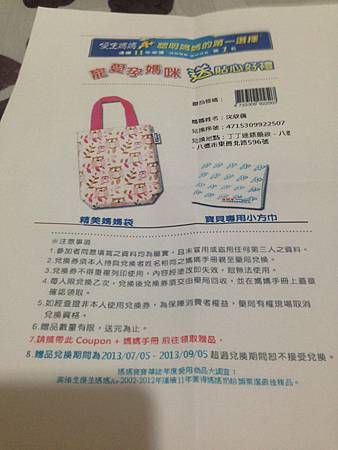 優生媽媽 A+ 聰明媽媽的第一選擇
寵愛孕媽咪 送貼心好禮
贈品條碼：
4715309922507
媽媽姓名：沈欣儀
兌換序號：4715309922507
兌換地點：丁丁連鎖藥妝 - 八德
- 八德市東勇北路596號
精美媽媽袋
寶貝專用小方巾
※注意事項
1.參加者同意填寫之資料均為屬實，且未冒用或盜用任何第三人之資料。
2.兌換券須本人持與兌換者姓名相同之媽媽手冊親至藥局兌換。
3.兌換券不得重複列印使用，內容經塗改即失效，恕無法使用。
4.每人限兌換乙次，兌換後兌換券須交由藥局回收，並在媽媽手冊上蓋章
確認領取。
5.如經查證非本人使用兌換券，為保障消費者權益，藥局有權現場取消
兌換資格。
6.贈品數量有限，送完為止。
7.請攜帶此 Coupon + 媽媽手冊 前往領取贈品。
8.贈品兌換期間為2013/07/05 - 2013/09/05 超過兌換期間恕不接受兌換。
媽媽寶寶雜誌年度愛用商品大調查！